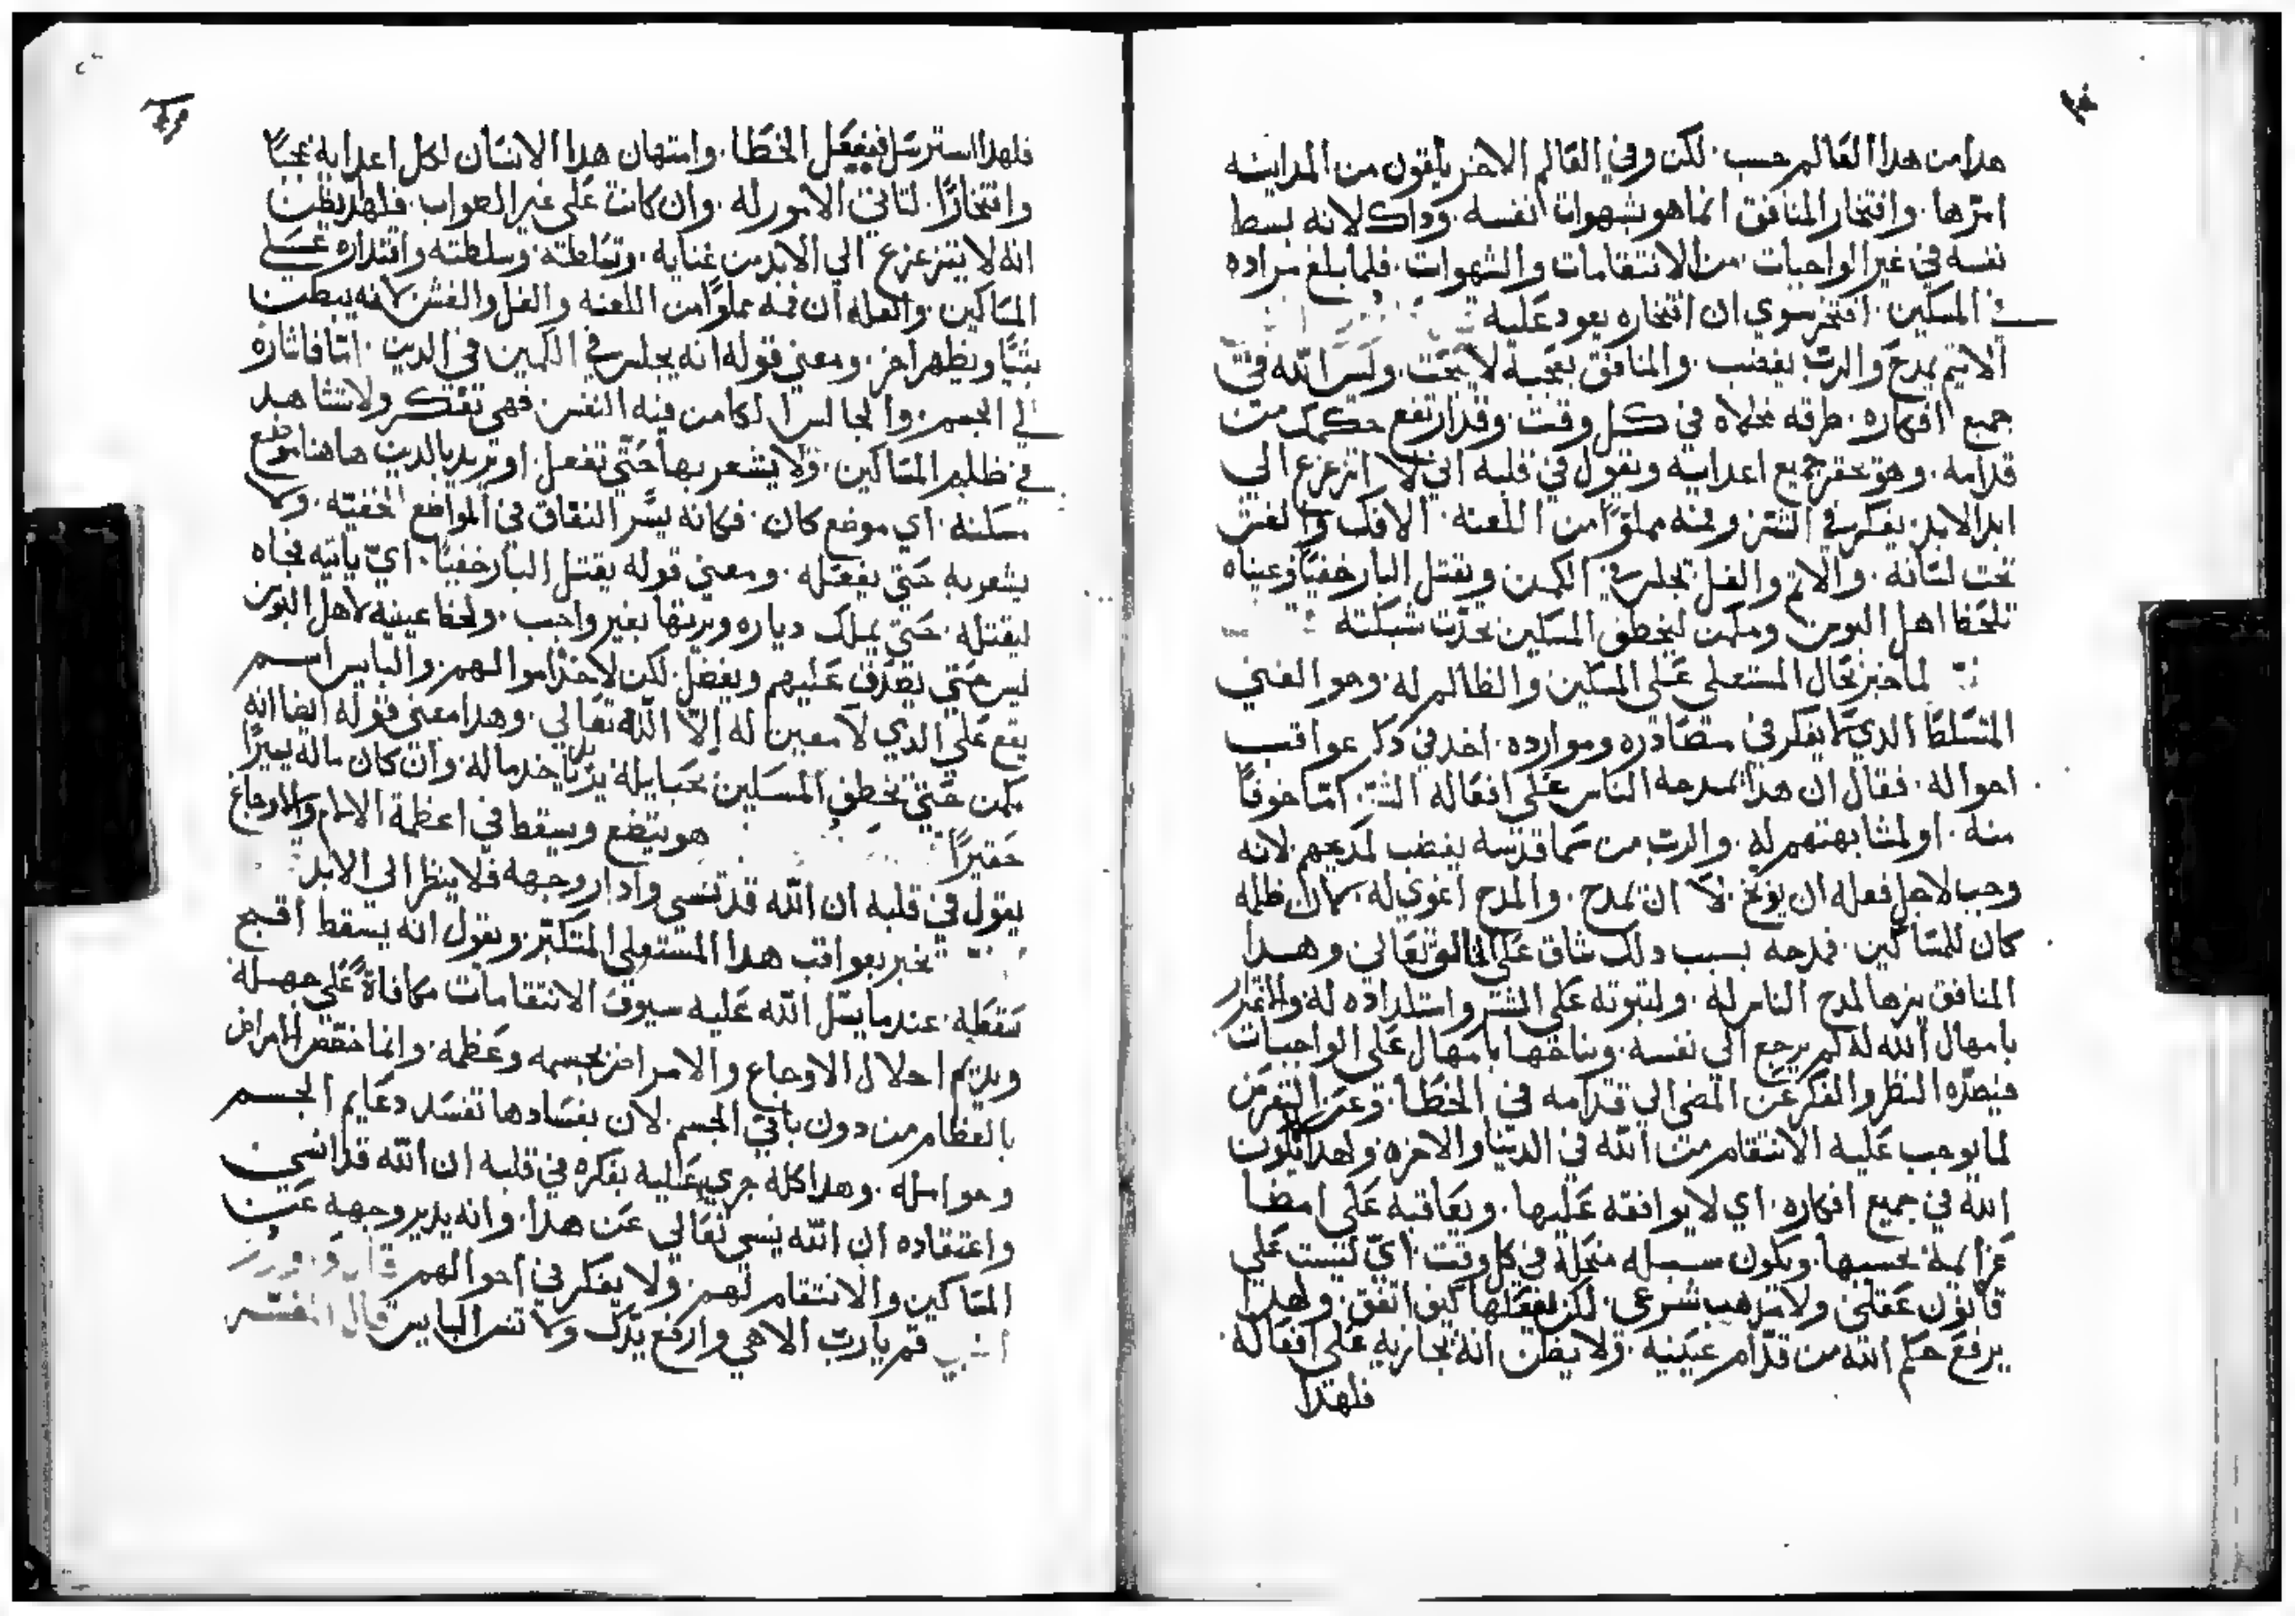 هدا من هدا العالم حسب . لكن وفي العالم الاخر يلقون من المداينه
امرها . وافتخار المنافق انما هو بشهوات نفسه . وداك لانه بسط
نفسه في غير الواجبات من الانتقامات والشهوات . فلما بلغ مراده
في المسكين . افتخر سوي ان افتخاره يعود عليه
الاتيم يمدح والرب يغضب . والمنافق بعجبه لا يبحث . وليس الله في
جميع افكاره . طرقه نجلاه في كل وقت . وقد ارتفع حكمك من
قدامه . وهو يحقر جميع اعدايه ويقول في قلبه اني لا اتزعزع الي
ابد الابد . يفكر في الشر وفمه مملوًا من اللعنه . الافك والغش
تحت لسانه . والاتم والغل يجلس في الكمين ويقتل البار خفيًا وعيناه
تلحظ اهل البوس ومكمن ليخطف المسكين بحدب شبكته
لما خبر بحال المستعلي علي المسكين والظالم له وهو الغني
المتسلط الدي لا يفكر في مصادره وموارده . اخد في دكر عواقب
احواله . فقال ان هدا يمدحه الناس علي افعاله الشر . امّا خوفًا
منه . او لمشابهتهم له . والرب من سما قدسه يغضب لمدحهم لانه
وجب لاجل فعله ان يوبخ . لا ان يمدح . والمدح اغوي له . كما ان ظلمه
كان للمساكين . فمدحه بسبب دلك شاق علي الخالق تعالي وهدا
المنافق يزها لمدح الناس له . ولتبوته علي الشر واستلداده له والتمدر
بامهال الله له لم يرجع الي نفسه . ويناخها بامهال علي الواجبات
فيصدّه النظر والفكر عن المضي الي قدامه في الخطا . وعن التعرض
لما يوجب عليه الانتقام من الله في الدنيا والاخره ولهدا يكون
الله في جميع افكاره . اي لا يوافقه عليها . ويعاقبه علي امضا
عزايمه بحسبها . ويكون سبيله منجله في كل وقت . اي ليست علي
قانون عقلي ولا مدهب شرعي . لكن يفعلها كيف اتفق . ولهدا
يرفع حكم الله من قدّام عينيه . ولا يظن انه يجازيه علي افعاله
فلهدا
فلهدا استرسل في فعل الخطا . وامتهان هدا الانسان لكل اعدايه عجبًا
وافتخارًا . لتاتي الامور له . وان كانت علي غير الصواب . فلهدا يظن
انه لا يتزعزع الي الابد من غنايه . وتسلطه . وسلطته واقتداره علي
المساكين . والعله ان فمه مملوًا من اللعنه والغل والغش لانه يبطن
شيًا ويظهر اخر . ومعني قوله انه يجلس في الكمين في الديب . امّا فاشاره
الي الجسم . والجالس الكامن فيه النفس . فهي تفتكر ولا تشاهد
في ظلم المساكين . ولا يشعر بها حتّي تفعل . او تريد بالديب هاهنا موضع
مسكنه . اي موضع كان . فكانه يسرّ النفاق في المواضع الخفيّه . ولا
يشعر به حتي يفعله . ومعني قوله يقتل البار خفيًا . اي ياتيه فجاه
ليقتله . حتي يملك دياره ويرتها بغير واجب . ولحظ عينيه لاهل البوس
ليس حتي يصدق عليهم ويفضل . لكن لاخد اموالهم . والبايس اسم
يقع علي الدي لا معين له الّا الله تعالي . وهدا معني قوله ايضا انه
يكمن حتي يخطف المسكين بحبايله يريد ياخد ماله . وان كان ماله يسيرًا
حقيرًا هو يتضع ويسقط في اعظمة الالام والاوجاع
يقول في قلبه ان الله قد تنسي وادار وجهه فلا ينظر الي الابد
يخبر بعواقب هدا المستعلي المتكبّر . ويقول انه يسقط اقبح
سقطه . عندما يسل الله عليه سيوف الانتقامات مكافاة علي جهله
ويديم احلال الاوجاع والامراض بجسمه وعظمه . وانما خصّص الامراض
بالعظام من دون باقي الجسم . لان بفسادها تفسد دعايم الجسم
وحوامله . وهدا كله جري عليه بفكره في قلبه ان الله قد انسي
واعتقاده ان الله ينسي تعالي عن هدا . وانه يدير وجهه عن
المساكين والانتقام لهم . ولا يفكر في احوالهم
قم يا رب الاهي وارفع يدك ولا تنس البايس قال المفسر